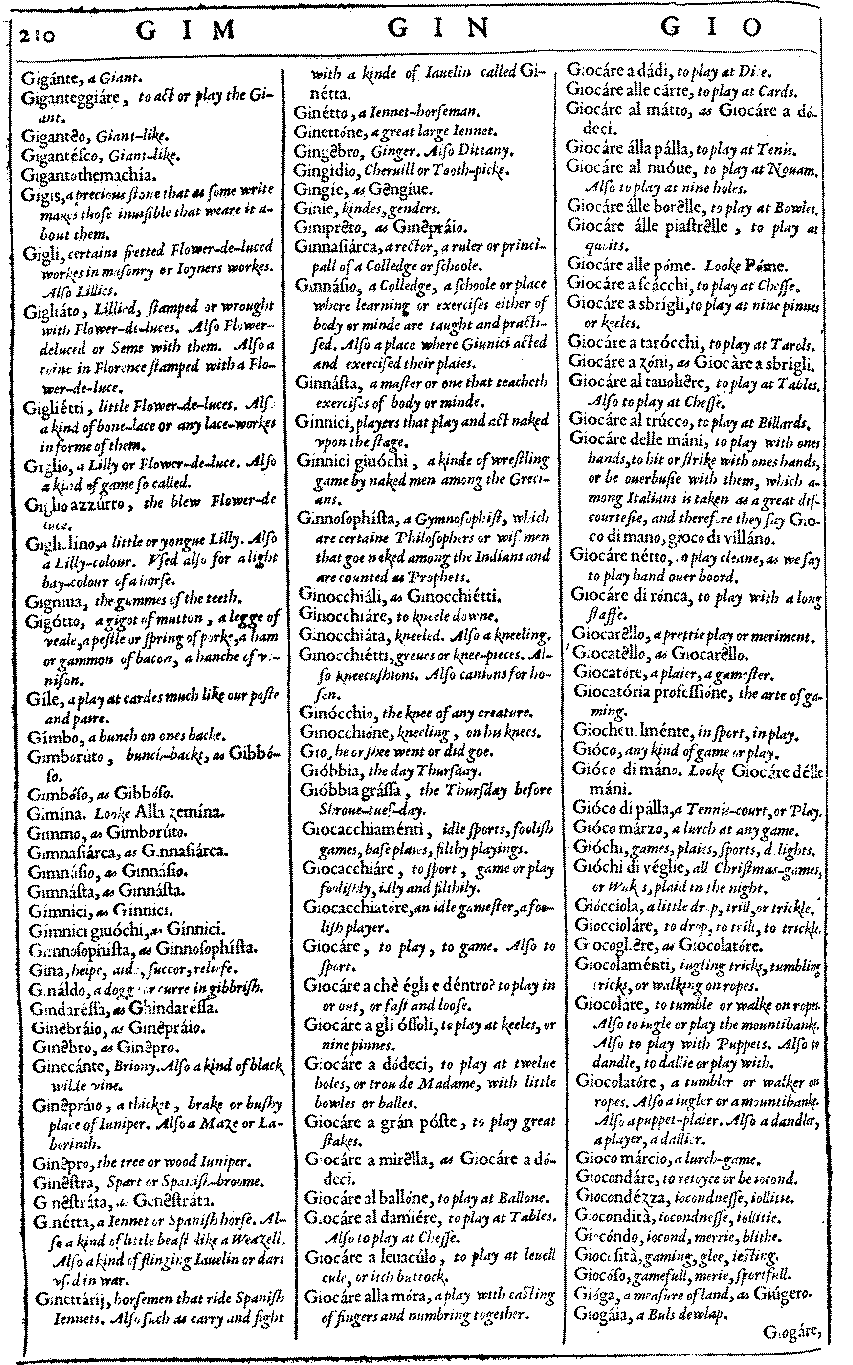 210 GIM GIN GIO
Gigánte, a Giant.
Giganteggiáre, to act or play the Gi-
ant.
Gigantêo, Giant-like.
Gigantésco, Giant-like.
Gigantothemachía.
Gigis, a precious stone that as some write
makes those inuisible that weare it a-
bout them.
Gigli, certaine fretted Flower-de-luced
workes in masonry or Ioyners workes.
Also Lillies.
Gigliáto, Lillied, stamped or wrought
with Flower-de-luces. Also Flower-
deluced or Seme with them. Also a
coine in Florence stamped with a Flo-
wer-de-luce.
Gigliétti, little Flower-de-luces. Also
a kind of bone-lace or any lace-workes
in forme of them.
Giglio, a Lilly or Flower-de-luce. Also
a kind of game so called.
Giglio azzúrro, the blew Flower-de
luce.
Gigliolíno, a little or yongue Lilly. Also
a Lilly-colour. Vsed also for a light
bay-colour of a horse.
Gignita, the gummes of the teeth.
Gigótto, a gigot of mutton, a legge of
veale, a pestle or spring of porke, a ham
or gammon of bacon, a hanche of ve-
nison.
Gíle, a play at cardes much like our poste
and paire.
Gímbo, a bunch on ones backe.
Gimborúto, bunch-backt, as Gibbó-
so.
Gimbóso, as Gibbóso.
Gimina. Looke Alla zemína.
Gimmo, as Gimborúto.
Gimnasiárca, as Ginnasiárca.
Gimnásio, as Ginnásio.
Gimnásta, as Ginnásta.
Gímnici, as Gínnici.
Gímnici giuóchi, as Gínnici.
Gimnosophísta, as Ginnosophísta.
Gina, helpe, aide, succor, reliefe.
Gináldo, a dogg or curre in gibbrish.
Gindaréssa, as Ghindaréssa.
Ginebráio, as Ginêpráio.
Ginêbro, as Ginêpro.
Gineccánte, Briony. Also a kind of black
wilde vine.
Ginêpráio, a thicket, brake or bushy
place of Iuniper. Also a Maze or La-
berinth.
Ginêpro, the tree or wood Iuniper.
Ginêstra, Spart or Spanish-broome.
Ginestráta, as Genêstráta.
Ginétta, a Iennet or Spanish horse. Al-
so a kind of little beast like a Weazell.
Also a kind of flinging Iauelin or dart
vsed in war.
Ginettárij, horsemen that ride Spanish
Iennets. Also such as carry and fight
with a kinde of Iauelin called Gi-
nétta.
Ginétto, a Iennet-horseman.
Ginettóne, a great large Iennet.
Gingêbro, Ginger. Also Dittany.
Gingidio, Cheruill or Tooth-picke.
Gingie, as Gêngiue.
Ginie, kindes, genders.
Giniprêto, as Ginêpráio.
Ginnasiárca, a rector, a ruler or princi-
pall of a Colledge or schoole.
Ginnásio, a Colledge, a schoole or place
where learning or exercises either of
body or minde are taught and practi-
sed. Also a place where Giunici acted
and exercised their plaies.
Ginnásta, a master or one that teacheth
exercises of body or minde.
Ginnici, players that play and act naked
vpon the stage.
Ginnici giuóchi, a kinde of wrestling
game by naked men among the Greci-
ans.
Ginnosophísta, a Gymnosophist, which
are certaine Philosophers or wise men
that goe naked among the Indians and
are counted as Prophets.
Ginocchiáli, as Ginocchiétti.
Ginocchiáre, to kneele downe.
Ginocchiáta, kneeled. Also a kneeling.
Ginocchiétti, greues or knee-pieces. Al-
so kneecushions. Also canions for ho-
sen.
Ginócchio, the knee of any creature.
Ginocchióne, kneeling, on his knees.
Gío, he or shee went or did goe.
Gióbbia, the day Thursday.
Gióbbia grássa, the Thursday before
Shroue-tuesday.
Giocacchiaménti, idle sports, foolish
games, base plaies, filthy playings.
Giocacchiáre, to sport, game or play
foolishly, idly and filthily.
Giocacchiatóre, an idle gamester, a foo-
lish player.
Giocáre, to play, to game. Also to
sport.
Giocáre a chè égli e déntro? to play in
or out, or fast and loose.
Giocáre a gli óssoli, to play at keeles, or
nine pinnes.
Giocáre a dódeci, to play at twelue
holes, or trou de Madame, with little
bowles or balles.
Giocáre a grán póste, to play great
stakes.
Giocáre a mirêlla, as Giocáre a dó-
deci.
Giocáre al ballóne, to play at Ballone.
Giocáre al damiére, to play at Tables.
Also to play at Chesse.
Giocáre a leuacúlo, to play at leuell
cule, or itch buttock.
Giocáre alla móra, a play with casting
of fingers and numbring together.
Giocáre a dádi, to play at Dice.
Giocáre alle cárte, to play at Cards.
Giocáre al mátto, as Giocáre a dó-
deci.
Giocáre álla pálla, to play at Tenis.
Giocáre al nuóue, to play at Nouam.
Also to play at nine holes.
Giocáre álle borêlle, to play at Bowles.
Giocáre álle piastrêlle, to play at
quoits.
Giocáre alle póme. Looke Póme.
Giocáre a scácchi, to play at Chesse.
Giocáre a sbrigli, to play at nine pinnes
or keeles.
Giocáre a tarócchi, to play at Tarols.
Giocáre a zóni, as Giocáre a sbrigli.
Giocáre al tauoliêre, to play at Tables.
Also to play at Chesse.
Giocáre al trúcco, to play at Billards.
Giocáre delle máni, to play with ones
hands, to hit or strike with ones hands,
or be ouerbusie with them, which a-
mong Italians is taken as a great dis-
courtesie, and therefore they say Gio-
co di mano, gioco di villáno.
Giocáre nétto, to play cleane, as we say
to play hand ouer boord.
Giocáre di rónca, to play with a long
staffe.
Giocarêllo, a prettie play or meriment.
Giocatêllo, as Giocarêllo.
Giocatóre, a plaier, a gamester.
Giocatória professióne, the arte of ga-
ming.
Giocheuolménte, in sport, in play.
Gióco, any kind of game or play.
Gióco di máno. Looke Giocáre délle
máni.
Gióco di pálla, a Tennis-court, or Play.
Gióco márzo, a lurch at any game.
Gióchi, games, plaies, sports, delights.
Gióchi di véglie, all Christmas-games,
or Wakes, plaid in the night.
Giócciola, a little drop, trill, or trickle.
Gioccioláre, to drop, to trill, to trickle.
Giocoglêre, as Giocolatóre.
Giocolaménti, iugling tricks, tumbling
tricks, or walking on ropes.
Giocoláre, to tumble or walke on ropes.
Also to iugle or play the mountibanke.
Also to play with Puppets. Also to
dandle, to dallie or play with.
Giocolatóre, a tumbler or walker on
ropes. Also a iugler or a mountibanke.
Also a puppet-plaier. Also a dandler,
a player, a dallier.
Gioco márcio, a lurch-game.
Giocondáre, to reioyce or be iocond.
Giocondézza, iocondnesse, iollitie.
Giocondità, iocondnesse, iollitie.
Giocóndo, iocond, merrie, blithe.
Giocosità, gaming, glee, iesting.
Giocóso, gamefull, merie, sportfull.
Gióga, a measure of land, as Giúgero.
Giogáia, a Buls dewlap.
Giogáre,